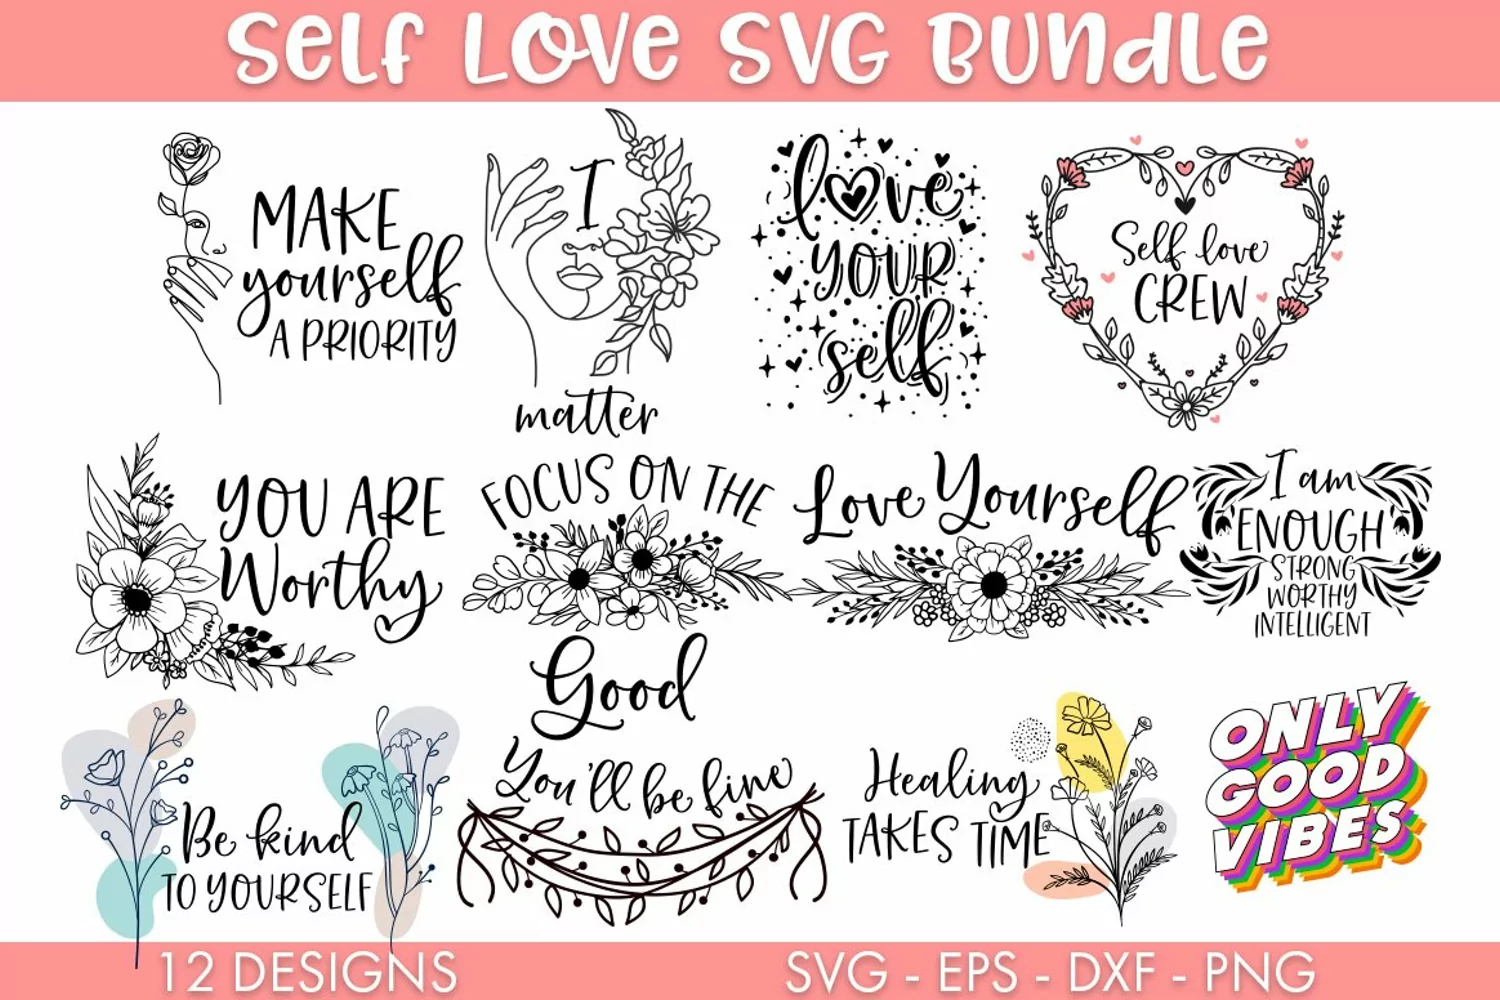 Self Love SVG Bundle
MAKE
yourself
A PRIORITY
I
matter
love
YOUR
self
Self love
CREW
YOU ARE
Worthy
FOCUS ON THE
Good
Love Yourself
I am
ENOUGH
STRONG
WORTHY
INTELLIGENT
Be kind
TO YOURSELF
You'll be fine
Healing
TAKES TIME
ONLY
GOOD
VIBES
12 DESIGNS
SVG - EPS - DXF - PNG